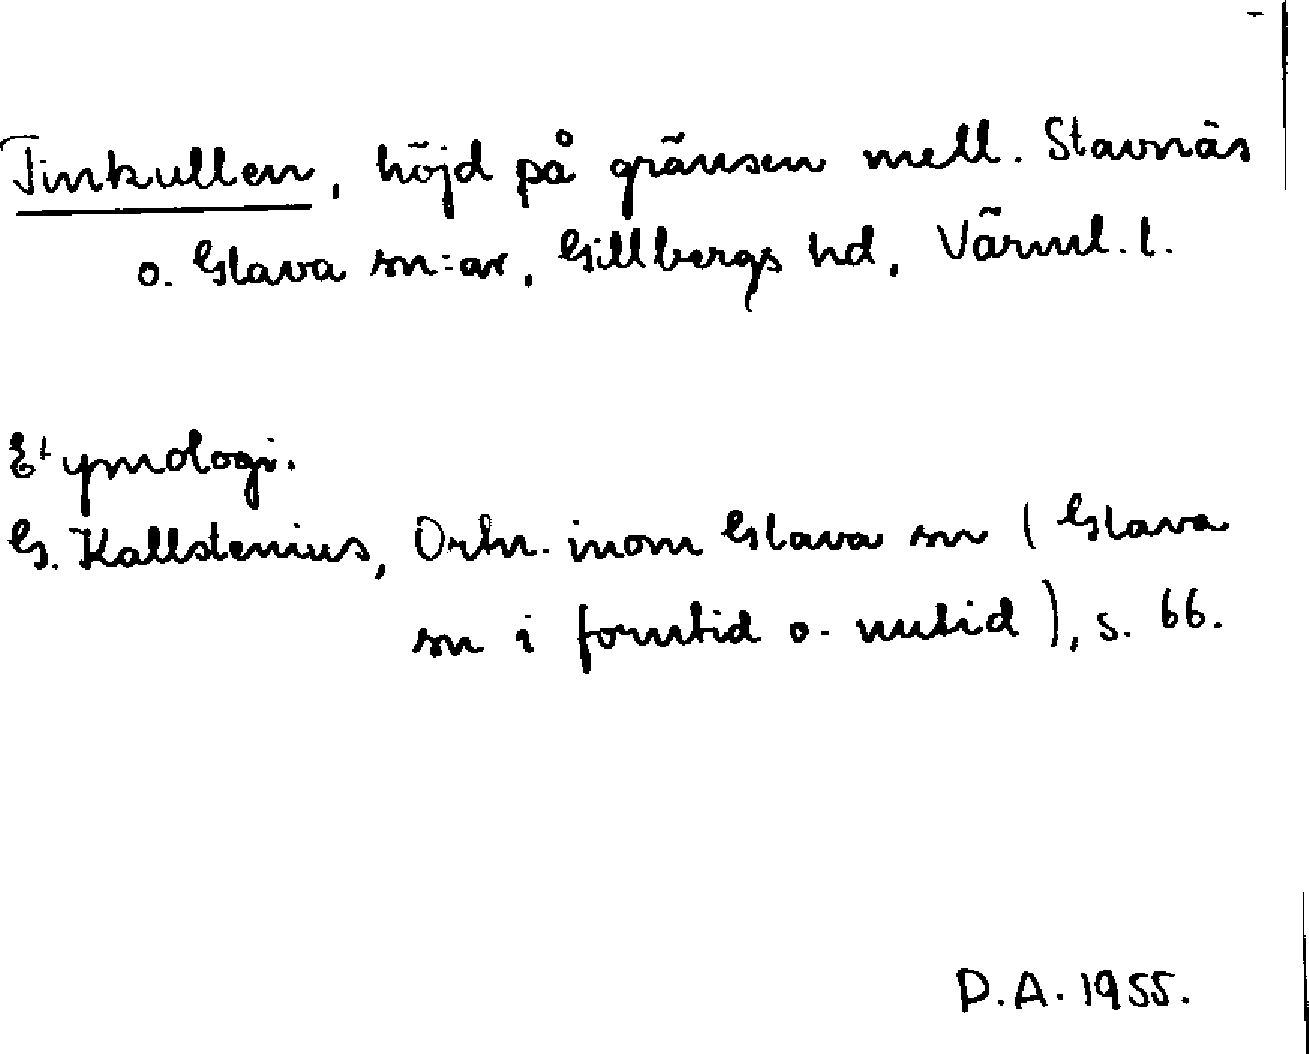 Tinkullen, höjd på gränsen mell. Stavnäs
o. Glava sn:ar, Gillbergs hd, Värml. l.
Etymologi.
G. Kallstenius, Ortn. inom Glava sn (Glava
sn i forntid o. nutid), s. 66.
D.A. 1955.